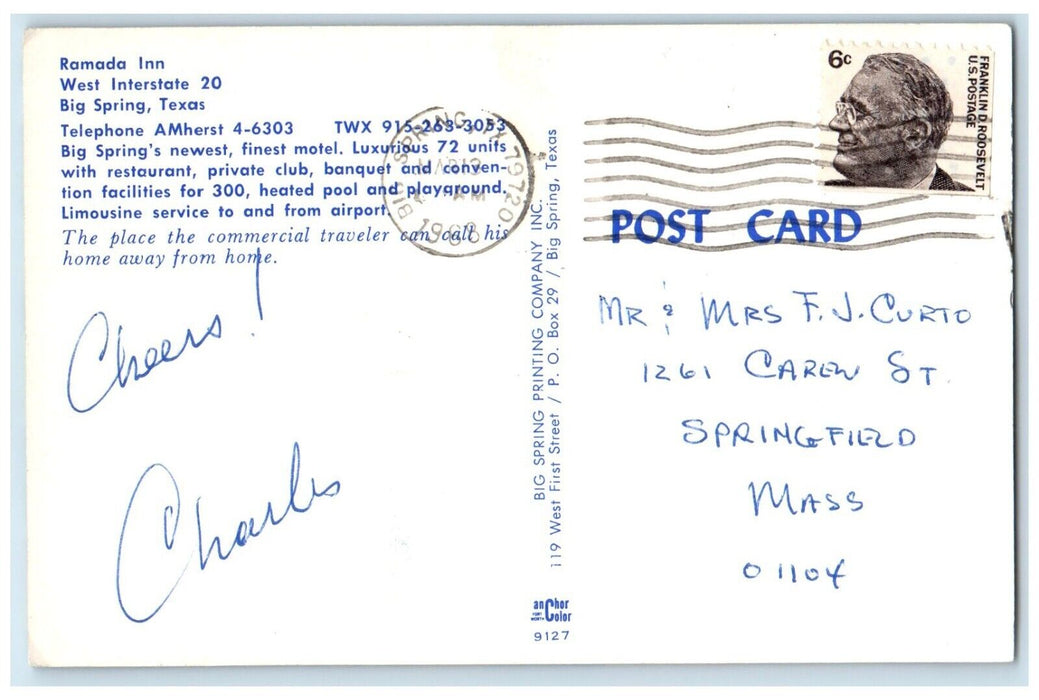 Ramada Inn
West Interstate 20
Big Spring, Texas
Telephone AMherst 4-6303 TWX 915-263-3053
Big Spring's newest, finest motel. Luxurious 72 units
with restaurant, private club, banquet and conven-
tion facilities for 300, heated pool and playground.
Limousine service to and from airport.
The place the commercial traveler can call his
home away from home.
Cheers!
Charles
BIG SPRING PRINTING COMPANY INC.
119 West First Street / P. O. Box 29 / Big Spring, Texas
anChor
FORT WORTH Color
9127
BIG SPRING, TX 79720
AM
6c
FRANKLIN D. ROOSEVELT
U.S. POSTAGE
POST CARD
MR & MRS F. J. CURTO
1261 CAREW ST.
SPRINGFIELD
MASS
01104